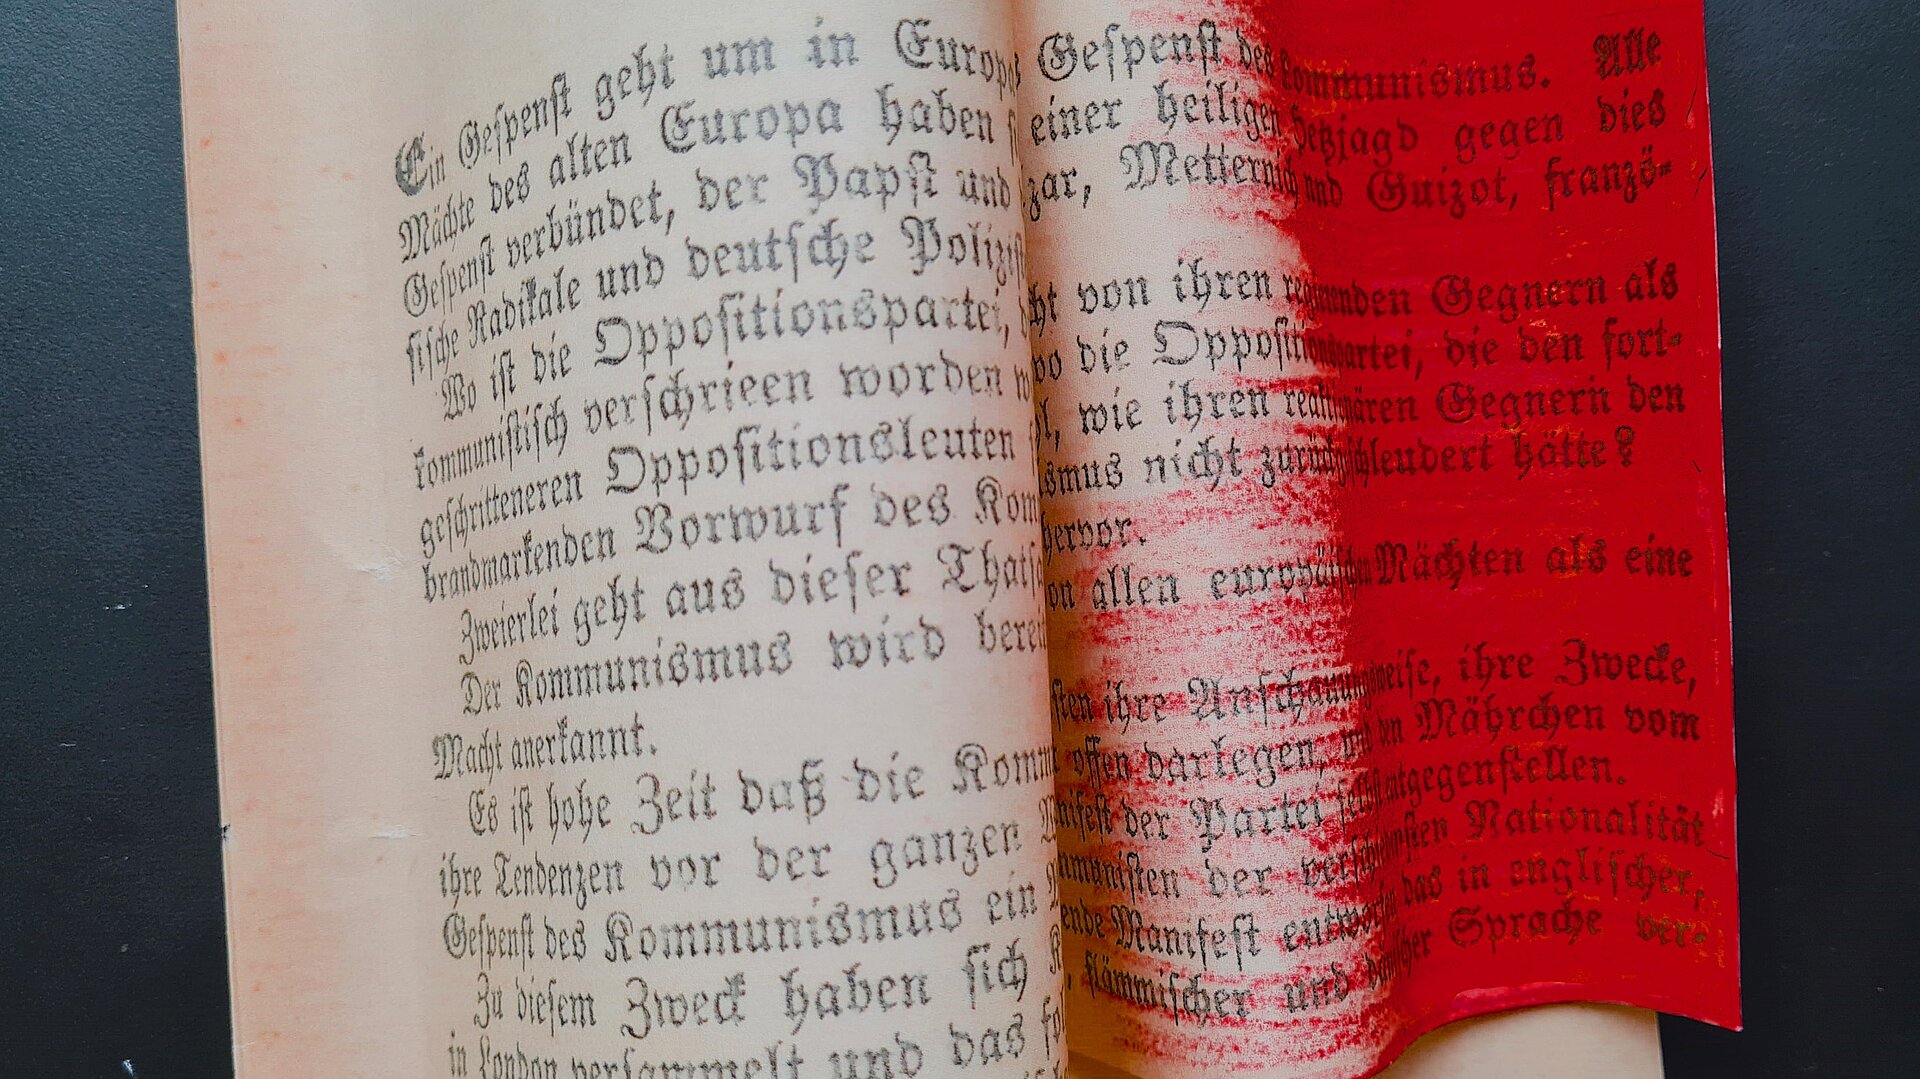 Ein Gespenst geht um in Europa Gespenst des Kommunismus. Alle
Mächte des alten Europa haben einer heiligen Hetzjagd gegen dies
Gespenst verbündet, der Papst und zar, Metternich und Guizot, franzö-
sische Radikale und deutsche Polizist
Wo ist die Oppositionspartei, ht von ihren regierenden Gegnern als
kommunistisch verschrieen worden wo die Oppositionspartei, die den fort-
geschritteneren Oppositionsleuten hl, wie ihren reaktionären Gegnern den
brandmarkenden Vorwurf des Kom ismus nicht zurückgeschleudert hätte?
Zweierlei geht aus dieser Thats hervor.
Der Kommunismus wird berei on allen europäischen Mächten als eine
Macht anerkannt.
Es ist hohe Zeit daß die Komm sten ihre Anschauungsweise, ihre Zwecke,
ihre Tendenzen vor der ganzen offen darlegen, und den Mährchen vom
Gespenst des Kommunismus ein Manifest der Partei selbst entgegenstellen.
Zu diesem Zweck haben sich K mmunisten der verschiedensten Nationalität
in London versammelt und das fo ende Manifest entworfen, das in englischer,
, flämmischer und dänischer Sprache ver-